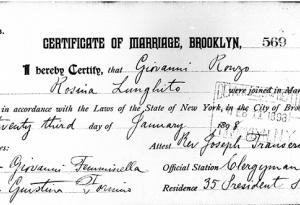 s.
CERTIFICATE OF MARRIAGE, BROOKLYN, 569
I hereby Certify, that Giovanni Ronzo
Rosina Lunghito were joined in Mar
in accordance with the Laws of the State of New York, in the City of Bro
twenty third day of January 1898
Attest, Rev Joseph
Giovanni Femminella Official Station Clergyman
Residence 35 President S